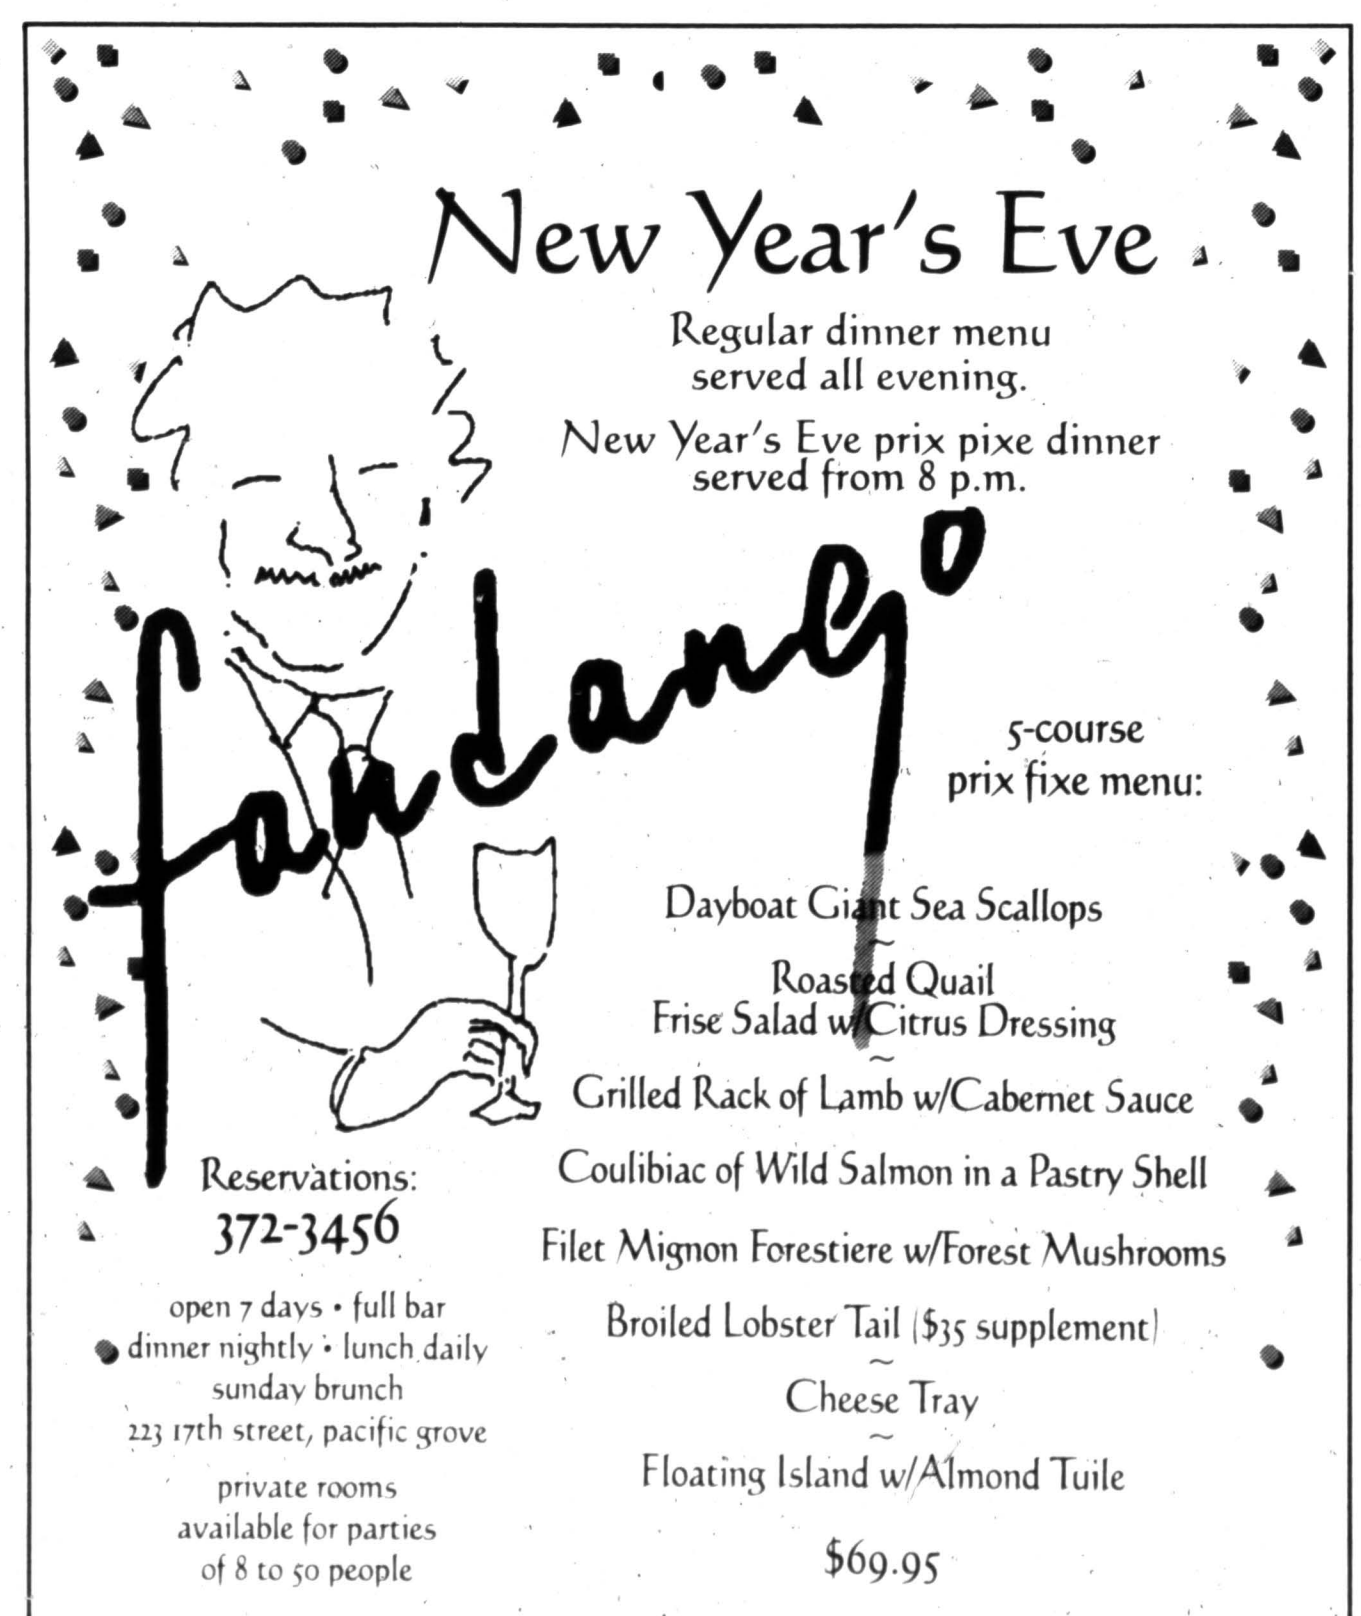 New Year's Eve
Regular dinner menu
served all evening.
New Year's Eve prix pixe dinner
served from 8 p.m.
fandango
5-course
prix fixe menu:
Dayboat Giant Sea Scallops
~
Roasted Quail
Frise Salad w/Citrus Dressing
~
Grilled Rack of Lamb w/Cabernet Sauce
Coulibiac of Wild Salmon in a Pastry Shell
Filet Mignon Forestiere w/Forest Mushrooms
Broiled Lobster Tail ($35 supplement)
~
Cheese Tray
~
Floating Island w/Almond Tuile
$69.95
Reservations:
372-3456
open 7 days • full bar
dinner nightly • lunch daily
sunday brunch
223 17th street, pacific grove
private rooms
available for parties
of 8 to 50 people